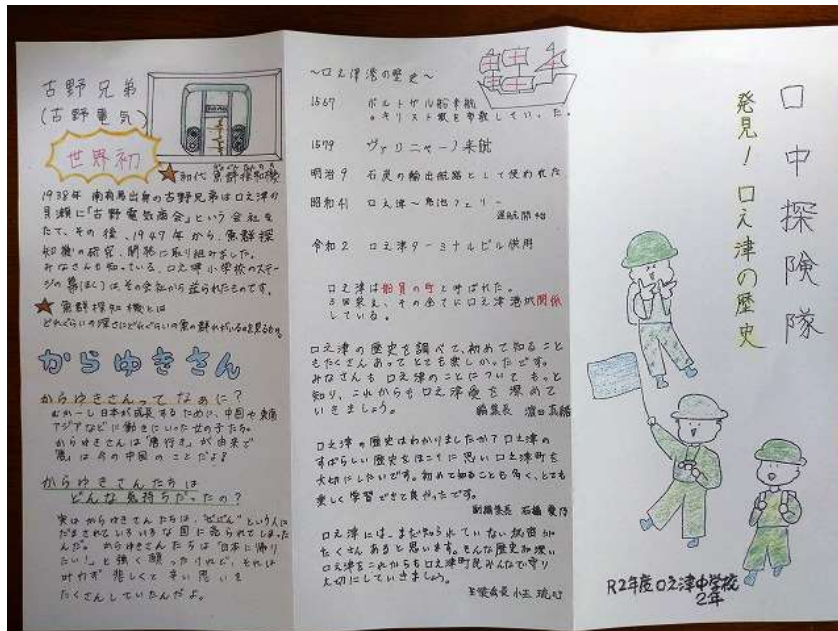 古野兄弟
(古野電気)
世界初
★初代 魚群探知機
1938年 南有馬出身の古野兄弟は口之津の
貝瀬に「古野電気商会」という会社を
たて、その後、1947年から、魚群探
知機の研究、開発に取り組みました。
みなさんも知っている、口之津小学校のステー
ジの幕(まく)は、その会社から送られたものです。
★魚群探知機とは
どれぐらいの深さにどれぐらいの魚の群れがいるのかを見るもの。
からゆきさん
からゆきさんってなぁに?
むかーし日本が成長するために、中国や東南
アジアなどに働きにいった女の子たち。
からゆきさんは「唐行き」が由来で
「唐」は今の中国のことだよ!
からゆきさんたちは
どんな気持ちだったの?
実はからゆきさんたちは、“ぜげん”という人に
だまされていろいろな国に売られてしまった
んだ。からゆきさんたちは「日本に帰り
たい!」と強く願ったけれど、それは
叶わず悲しくて辛い思いを
たくさんしていたんだよ。
～口之津港の歴史～
1567 ポルトガル船来航
。キリスト教を布教していった。
1579 ヴァリニャーノ来航
明治9 石炭の輸出航路として使われた
昭和41 口之津～鬼池フェリー
運航開始
令和2 口之津ターミナルビル供用
口之津は船員の町と呼ばれた。
3回栄え、その全てに口之津港が関係
している。
口之津の歴史を調べて、初めて知ること
もたくさんあってとても楽しかったです。
みなさんも口之津のことについてもっと
知り、これからも口之津愛を深めて
いきましょう。
編集長 濵田真緒
口之津の歴史はわかりましたか?口之津の
すばらしい歴史をほこりに思い口之津町を
大切にしたいです。初めて知ることも多く、とても
楽しく学習できて良かったです。
副編集長 石橋
口之津には、まだ知られていない秘密が
たくさんあると思います。そんな歴史深い
口之津をこれからも口之津町民みんなで守り
大切にしていきましょう。
小玉
口中探険隊
発見!口之津の歴史
R2年度口之津中学校
2年